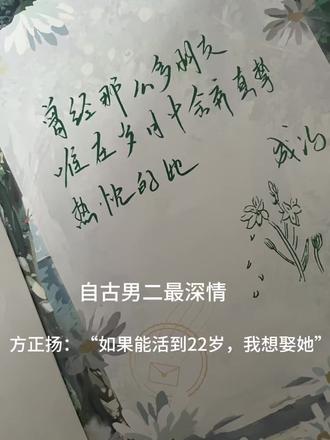 曾经那么多朋友
唯在岁月中舍弃真挚
热忱的她
自古男二最深情
方正扬：“如果能活到22岁，我想娶她”